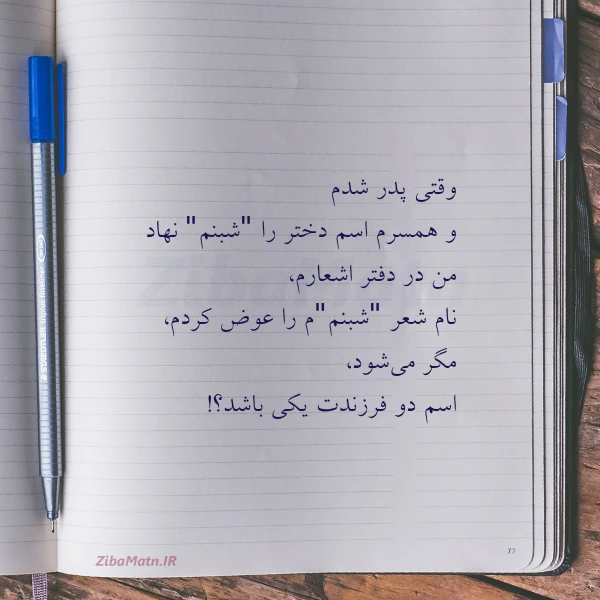 وقتی پدر شدم
و همسرم اسم دختر را "شبنم" نهاد
من در دفتر اشعارم،
نام شعر "شبنم"م را عوض کردم،
مگر می‌شود،
اسم دو فرزندت یکی باشد؟!
ZibaMatn.IR